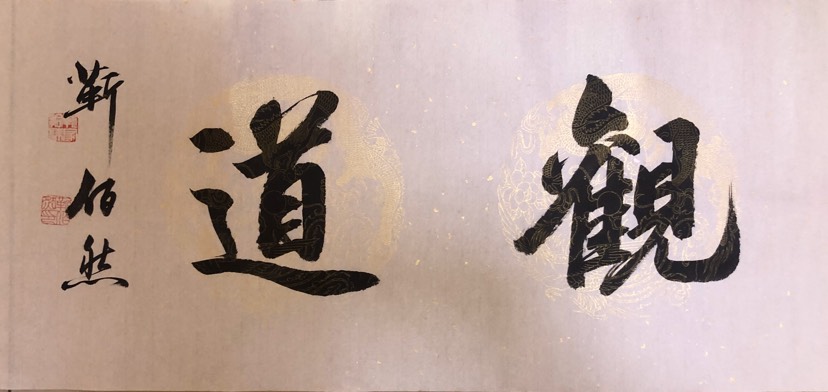 觀道
靳佰然